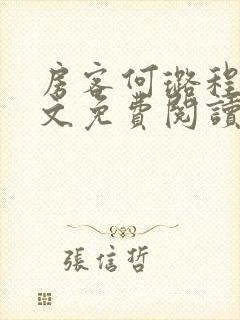 房客何璐程
文免費閱讀
張信哲